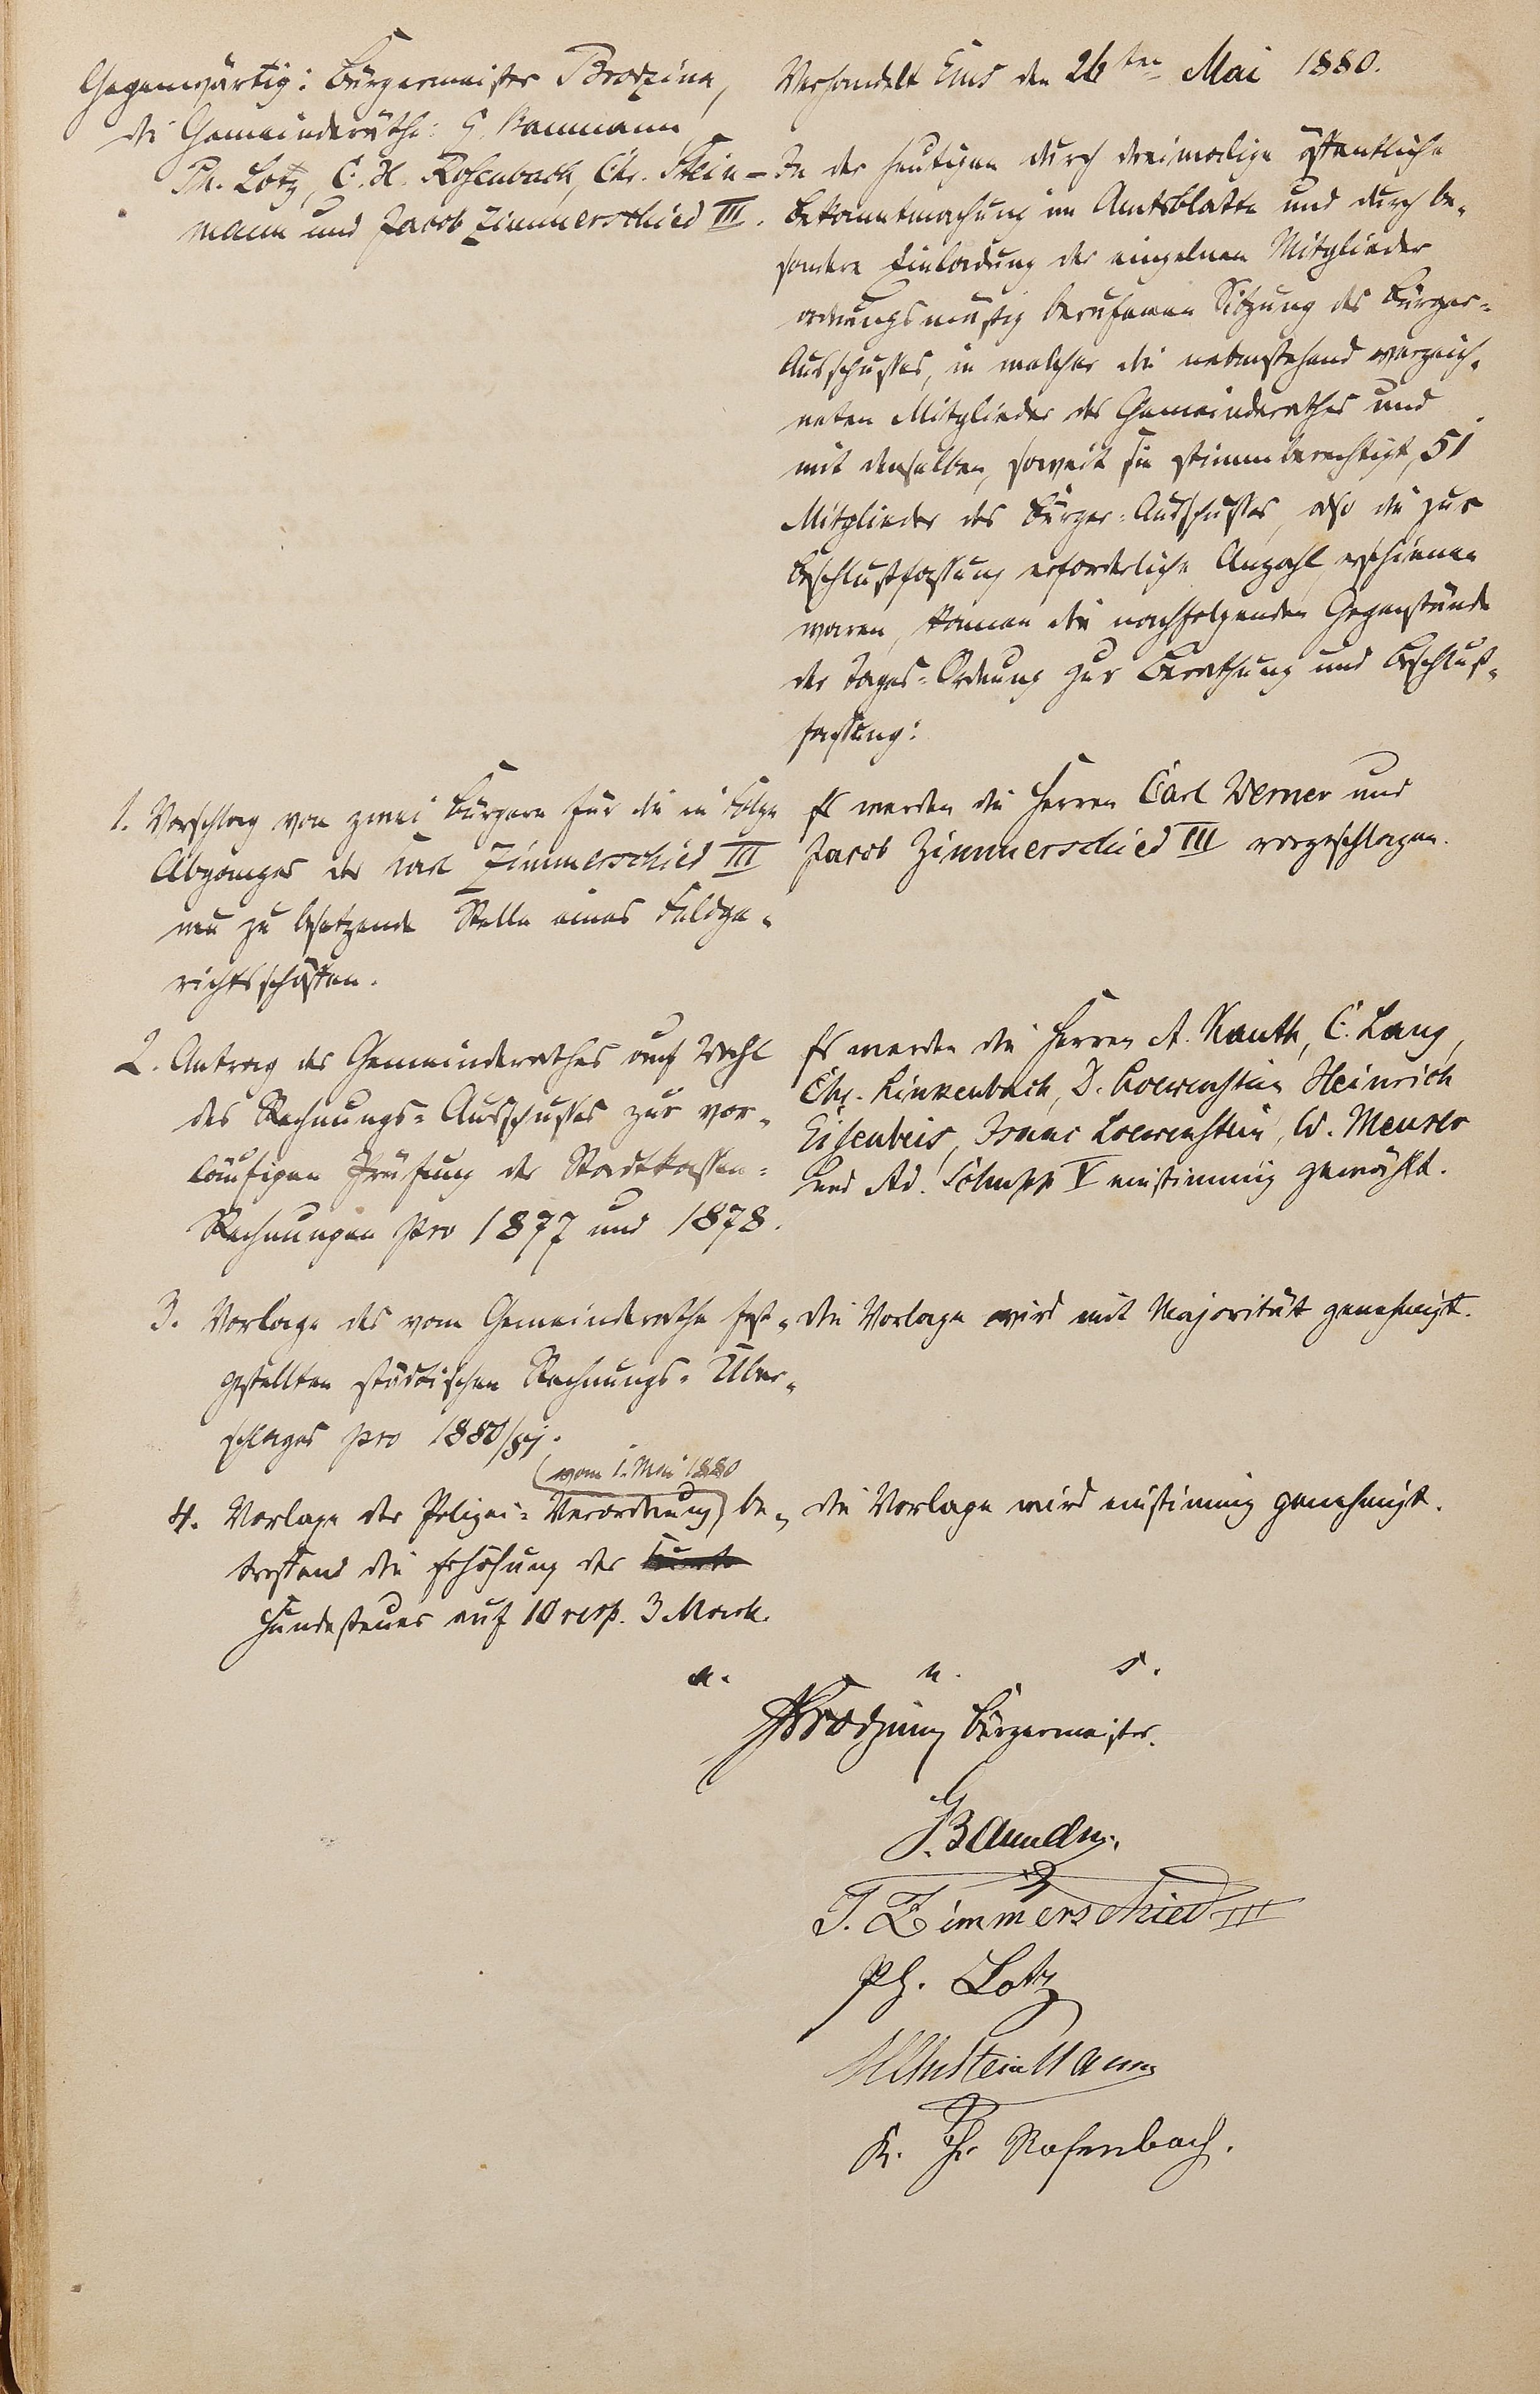 Gegenwärtig: Bürgermeister Brodzina,
die Gemeinderäthe: G. Baumann,
Ph. Lotz, C. H. Rosenbach, Chr. Stein-
mann und Jacob Zimmerschied III.
Verhandelt Ems den 26ten Mai 1880.
In der heutigen durch dreimalige öffentliche
Bekanntmachung im Amtsblatte und durch be-
sondere Einladung der einzelnen Mitglieder
ordnungsmäßig berufenen Sitzung des Bürger-
Ausschusses, in welcher die nebenstehend verzeich-
neten Mitglieder des Gemeinderathes und
mit denselben, soweit sie stimmberechtigt, 51
Mitglieder des Bürger-Ausschusses, also die zur
Beschlußfassung erforderliche Anzahl, erschienen
waren, kamen die nachfolgenden Gegenstände
der Tages-Ordnung zur Berathung und Beschluß-
fassung:
1. Vorschlag von zwei Bürgern für die in Folge
Abganges des Karl Zimmerschied III
neu zu besetzende Stelle eines Feldge-
richtsschöffen.
Es werden die Herren Carl Werner und
Jacob Zimmerschied III vorgeschlagen.
2. Antrag des Gemeinderathes auf Wahl
des Rechnungs-Ausschusses zur vor-
läufigen Prüfung der Stadtkassen-
Rechnungen pro 1877 und 1878.
Es werden die Herren A. Kauth, C. Lang,
Chr. Linkenbach, D. Loewenstein Heinrich
Eisenbeis, Isaac Loewenstein, W. Meuser
und Ad. Schupp V einstimmig gewählt.
3. Vorlage des vom Gemeinderathe fest-
gestellten städtischen Rechnungs-Über-
schlages pro 1880/81.
die Vorlage wird mit Majorität genehmigt.
(vom 1. Mai 1880
4. Vorlage der Polizei-Verordnung) be-
treffend die Erhöhung der
Hundesteuer auf 10 resp. 3 Mark.
die Vorlage wird einstimmig genehmigt.
a. u. s.
Brodzina Bürgermeister.
G. Baumann.
J. Zimmerschied III
Ph. Lotz
Chr Steinmann
K. Hr Rosenbach.